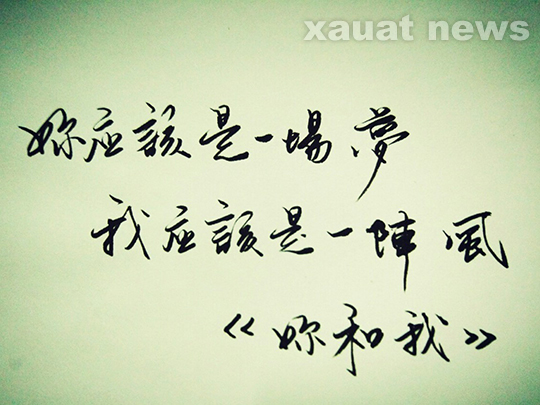 xauat news
妳应該是一場夢
我应該是一陣風
《妳和我》